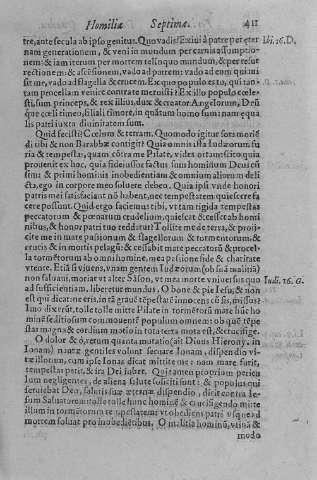 Homiliæ Septima. 411
tre, ante secula ab ipso genitus. Quo vadis? Exivi à patre per æter
nam generationem, & veni in mundum per carnis assumptio-
nem: & iam iterum per mortem relinquo mundum, & per resur
rectionem: & ascensionem, vado ad patrem: vado ad eum qui mi
sit me, vado ad flagella & crucem. Ex quo populo isto, qui tan-
tam pencillam venire contrate meruisti? Ex illo populo cœle-
sti, sum princeps, & rex illius, dux & creator Angelorum, Deũ
que cœli timeo, filiali timore, in quãtum homo sum: nam equa
lis patri iuxta divinitatem sum.
Quid fecisti? Cœlum & terram. Quomodo igitur sors moriẽ
di tibi & non Barabbæ contigit? Quia omnis ista Iudæorum fu
ria & tempestas, quam cõtra me Pilate, vides ob amissio quin
provenit ex hoc, quia fideiussor factus sum hominum Deui cõ
sini & primi hominis inobedientiam & omnium aliorum deli
cta, ego in corpore meo soluere debeo. Quia ipsi vnde honori
patris mei satisfaciant nõ habent, nec tempestatem quiescere fa
cere possunt. Quid ergo faciemus tibi, vt tam rigida tempestas
peccatorum & pœnarum crudelium, quiescat & cesset ab homi
nibus, & honor patri tuo reddatur? Tollite me de terra, & proij-
cite me in mare passionum & flagellorum & tormentorum; &
crucis & in mortis pelagũ: & cessabit mare peccatorũ & procel-
la tormẽtorum ab omni homine, mea passione fide & charitate
vtente. Etiã si viuens, vnam gentem Iudæorum (ob suã malitiã)
non saluavi, moriar vt alter Sãson, vt mea morte vniuersus quo
ad sufficientiam, liberetur mundus. O bone & pie Iesu, & non
est qui dicat ne eris, in tã graui tẽpestate innocens cũ sis, missus?
Imo dixerũt, tolle tolle mitte Pilate in tormẽtorũ mare hũc ho
minẽ seditiosum commouentẽ populum omnem: ob quẽ tẽpe
stas magna & cordium motio in tota terra mota est, & crucifige.
O dolor & ò, rerum quanta mutatio (ait Diuus Hierony. in
Ionam) nautæ gentiles volunt seruare Ionam, dispendio vi-
tæ illorum, cum ipse Ionas dicat mittite me: nam mare surit,
tempestas patit, & ira Dei iubet. Qui tamen propriam pericu
lum negligentes, de aliena salute soliciti sunt: & populus qui
seruiebat Deo, salutis suæ æternæ dispendio, dicit contra Ie-
sum Saluatorem: tolle tolle hunc hominẽ & crucifigendo mitte
illum in tormẽtorum tẽpestatem: vt obediens patri vsque ad
mortem soluat pro inobedientibus. O malitia hominũ, vtinã &
modo
Ioã. 16. D.
Iudi. 16. G.